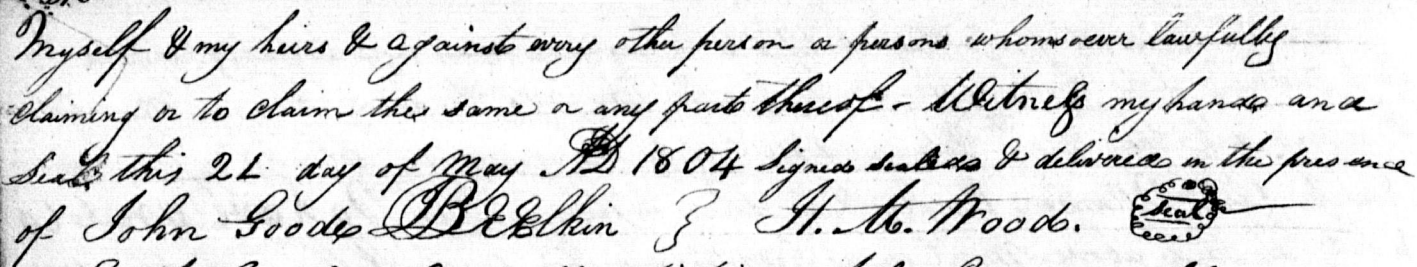 Myself & my heirs & against every other person or persons whomsoever lawfully
claiming or to claim the same or any part thereof - Witness my hand and
Seal this 21 day of May AD 1804 Signed sealed & delivered in the presence
of John Goode B E Elkin } H. M. Wood. seal